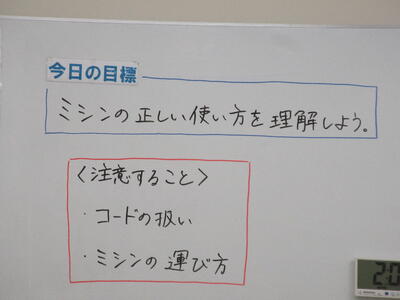 今日の目標
ミシンの正しい使い方を理解しよう。
〈注意すること〉
・コードの扱い
・ミシンの運び方
20